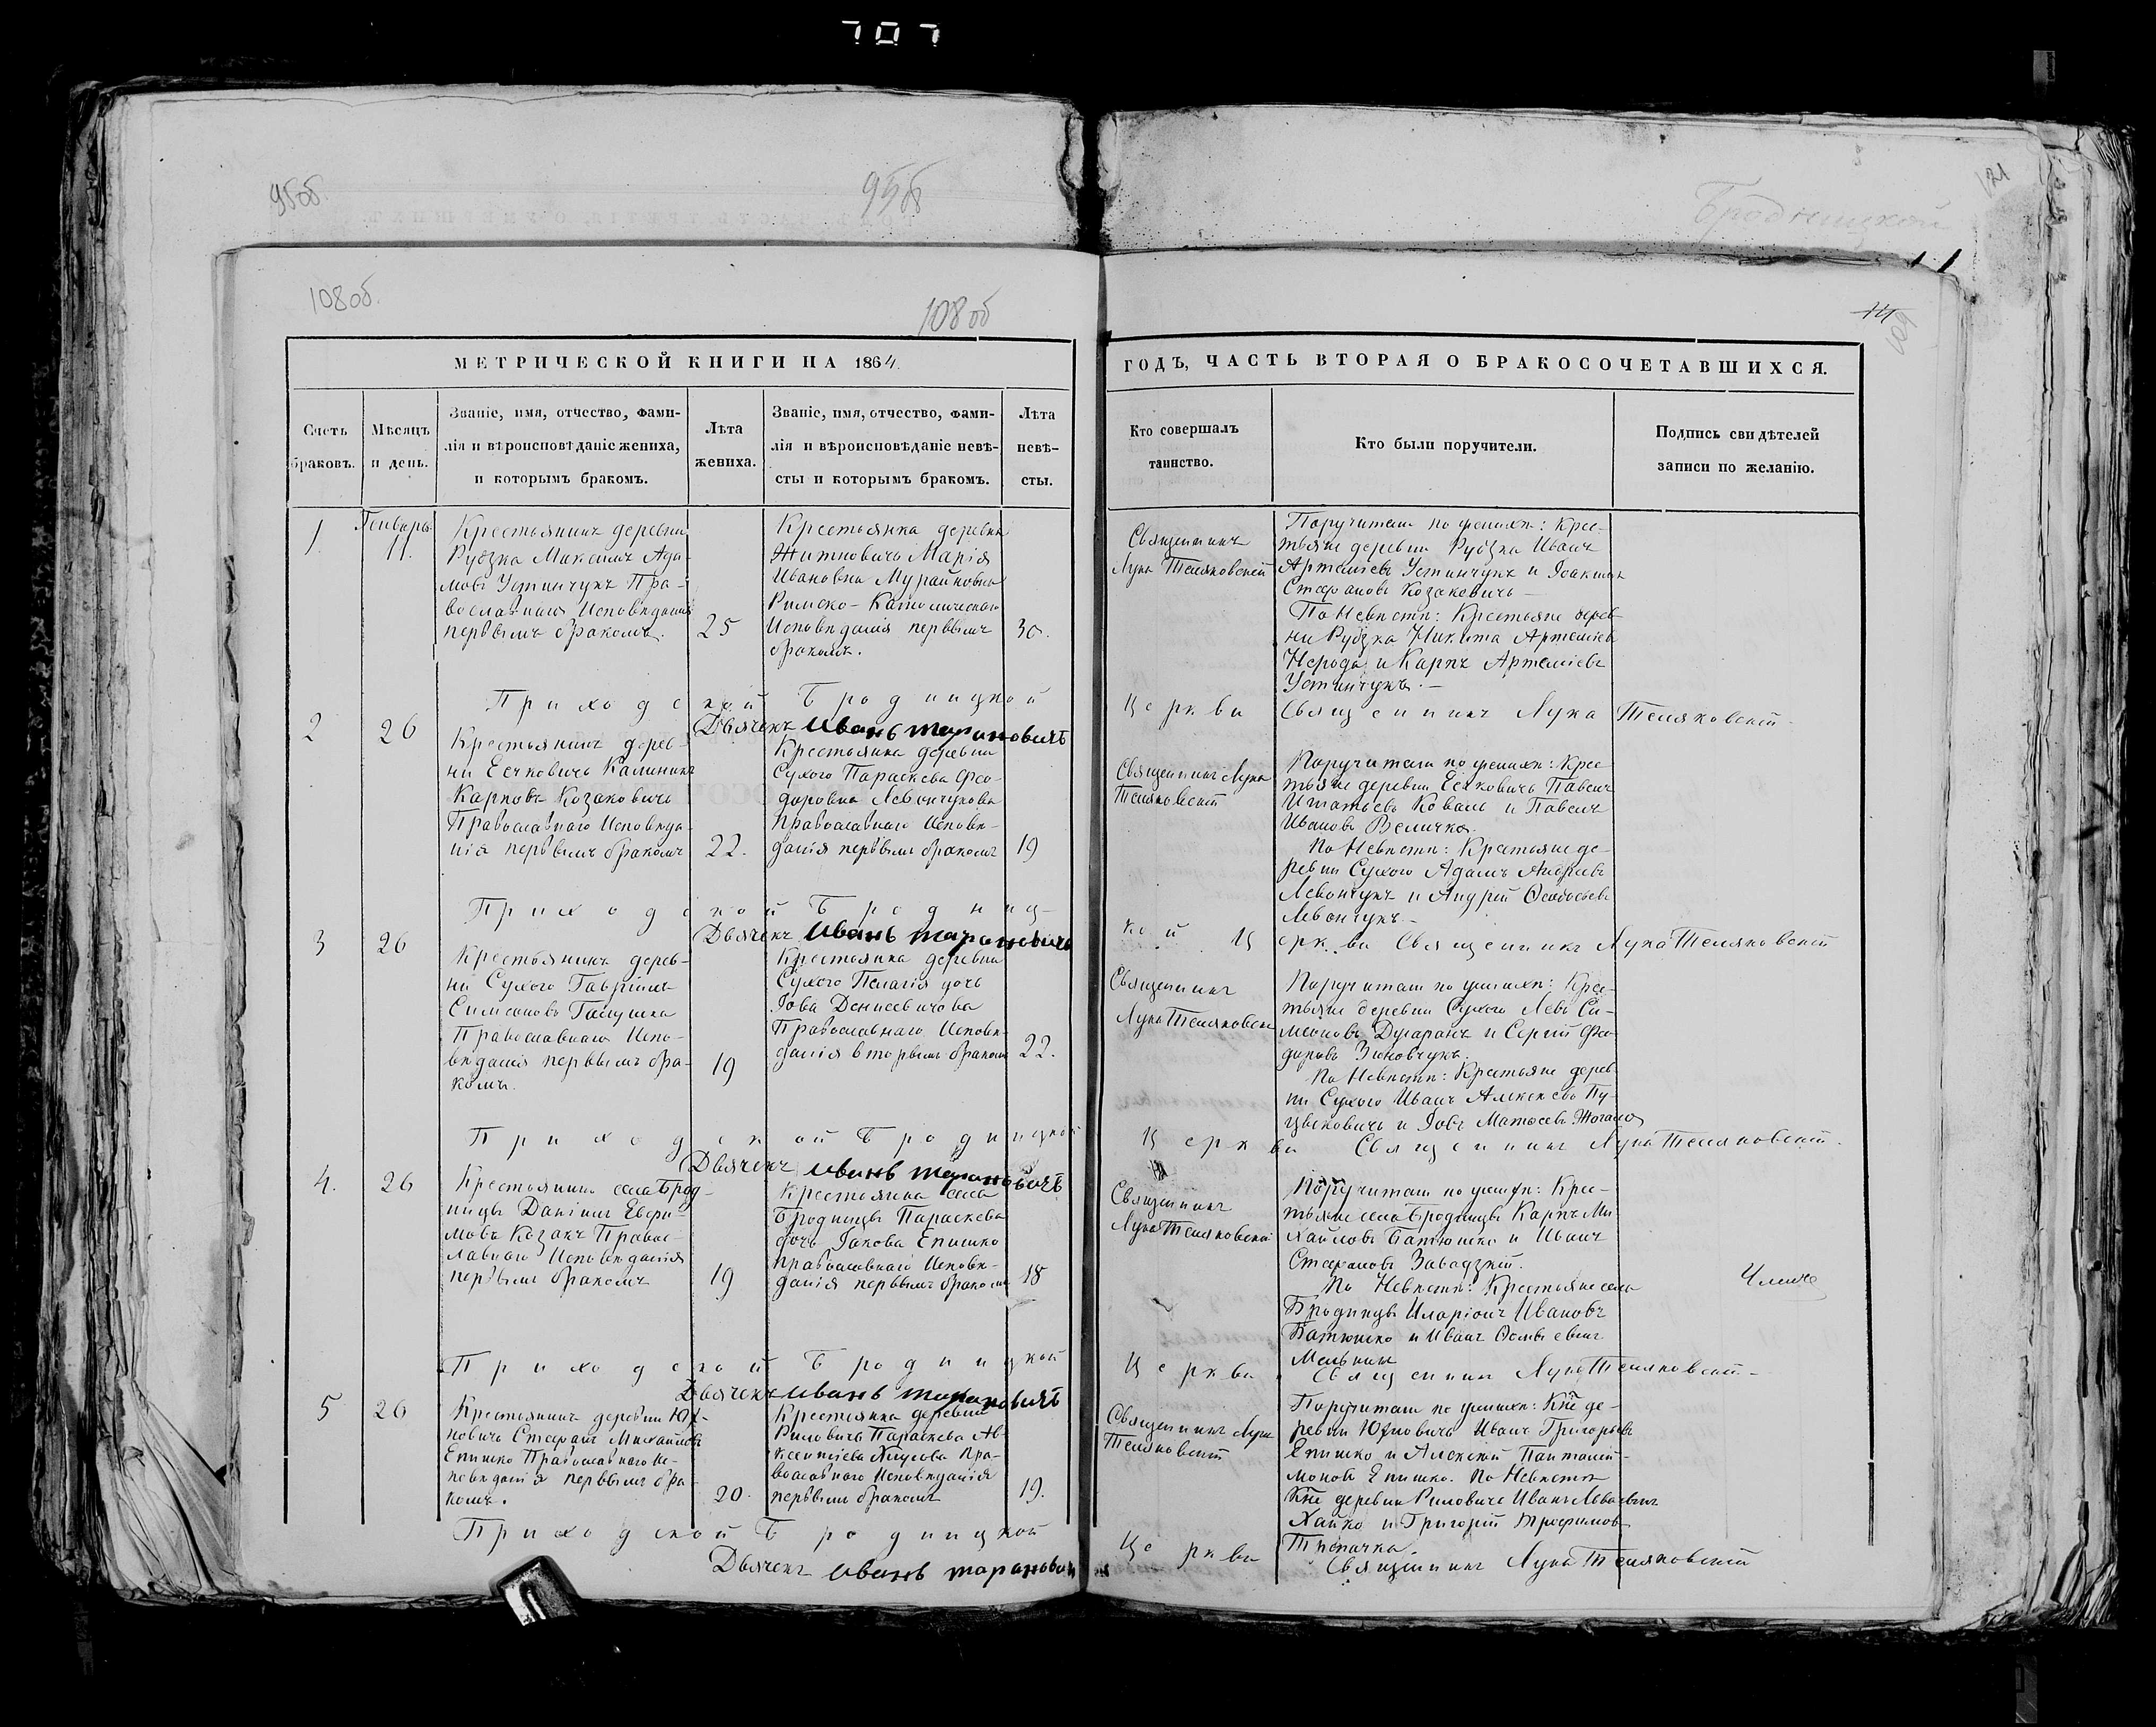 707
95об.
95об
Бродницкой
121
108об.
108об
109
МЕТРИЧЕСКОЙ КНИГИ НА 1864.
ГОДЪ, ЧАСТЬ ВТОРАЯ О БРАКОСОЧЕТАВШИХСЯ.
Счетъ
браковъ.
Мѣсяцъ
и день.
Званіе, имя, отчество, фами-
лія и вѣроисповѣданіе жениха,
и которымъ бракомъ.
Лѣта
жениха.
Званіе, имя, отчество, фами-
лія и вѣроисповѣданіе невѣ-
сты и которымъ бракомъ.
Лѣта
невѣ-
сты.
Кто совершалъ
таинство.
Кто были поручители.
Подпись свидѣтелей
записи по желанію.
1.
Генваря
11.
Крестьянинъ деревни
Рудзка Максимъ Ада-
мовъ Устинчукъ Пра-
вославнаго Исповѣданія
первымъ бракомъ.
25
Крестьянка деревни
Житновичь Марія
Ивановна
Римско-Католическаго
Исповѣданія первымъ
бракомъ.
30.
Священникъ
Лука Теляковскій
Поручители по женихѣ: Крес-
тьяне деревни Рудзка Иванъ
Артеміевъ Устинчукъ и Іоакимъ
Стефановъ Козакевичь
По Невѣстѣ: Крестьяне дерев-
ни Рудзка Никита Артеміевъ
Нерода и Карпъ Артеміевъ
Устинчукъ.
Приходской Бродницкой
Церкви Священникъ Лука Теляковскій
Дьячекъ Иванъ Тарановичъ
2
26
Крестьянинъ дерев-
ни Есиковичь Калиникъ
Карповъ Козаковичь
Православнаго Исповѣда-
нія первымъ бракомъ
22.
Крестьянка деревни
Сухого Параскева Фео-
доровна Левончукова
Православнаго Исповѣ-
данія первымъ бракомъ
19
Священникъ Лука
Теляковскій
Поручители по женихѣ: Крес-
тьяне деревни Есиковичь Павелъ
Игнатьевъ Коваль и Павелъ
Ивановъ Величко.
По Невѣстѣ: Крестьяне де-
ревни Сухого Адамъ Андреевъ
Левончукъ и Андрей
Левончукъ.
Приходской Брод ниц-
кой Церкви Священникъ Лука Теляковскій
Дьячекъ Иванъ Тарановичъ
3
26
Крестьянинъ дерев-
ни Сухого Гавріилъ
Симеоновъ
Православнаго Испо-
вѣданія первымъ бра-
комъ.
19
Крестьянка деревни
Сухого Пелагія дочь
Іова Денисевичова
Православнаго Исповѣ-
данія вторымъ бракомъ
22.
Священникъ
Лука Теляковскій
Поручители по женихѣ: Крес-
тьяне деревни Сухого Левъ Си-
меоновъ и Сергій Фео-
доровъ Зиновчукъ.
По Невѣстѣ: Крестьяне дерев-
ни Сухого Иванъ Алексѣевъ Пу-
цыковичь и Іовъ
Приходской Бродницкой
Церкви Священникъ Лука Теляковскій.
Дьячекъ Иванъ Тарановичъ
4.
26
Крестьянинъ села Брод-
ницы Даніилъ Евфи-
мовъ Козакъ Правос-
лавнаго Исповѣданія
первымъ бракомъ
19
Крестьянка села
Бродницы Параскева
дочь Іакова Епишко
Православнаго Исповѣ-
данія первымъ бракомъ
18
Священникъ
Лука Теляковскій
Поручители по женихѣ: Крес-
тьяне села Бродницы Карпъ Ми-
хайловъ Батюшко и Иванъ
Стефановъ Завадзкій.
По Невѣстѣ: Крестьяне села
Бродницы Иларіонъ Ивановъ
Батюшко и Иванъ
Мельникъ
Приходской Бродницкой
Церкви Священникъ Лука Теляковскій
Дьячекъ Иванъ Тарановичъ
5
26
Крестьянинъ деревни Юх-
новичь Стефанъ Михайловъ
Епишко Православнаго Ис-
повѣданія первымъ бра-
комъ.
20.
Крестьянка деревни
Риловичь Параскева Ав-
ксентіева Пра-
вославнаго Исповѣданія
первымъ бракомъ
19.
Священникъ Лука
Теляковскій
Поручители по женихѣ: Кне де-
ревни Юхновичь Иванъ Григорьевъ
Епишко и Алексѣй Пантелей-
моновъ Епишко. По Невѣстѣ
Кне деревни Риловичь Иванъ
Хайко и Григорій Трофимовъ
Приходской Бродницкой
Церкви Священникъ Лука Теляковскій
Дьячекъ Иванъ Таранович